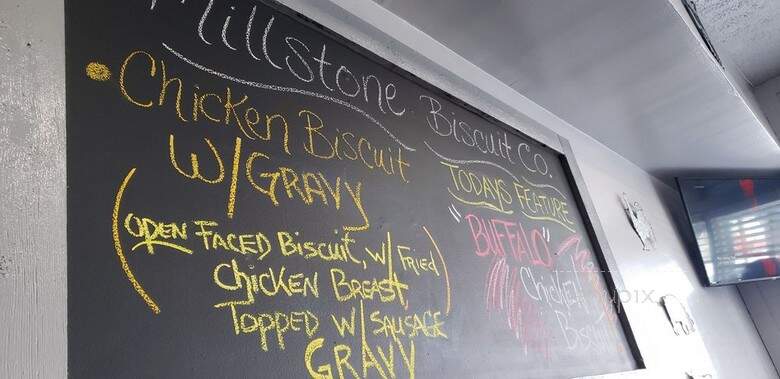 Millstone Biscuit Co.
• Chicken Biscuit
W/ GRAVY
(OPEN FACED Biscuit, w/ FRIED
Chicken Breast,
Topped w/ SAUSAGE
GRAVY
TODAYS FEATURE
"BUFFALO"
Chicken